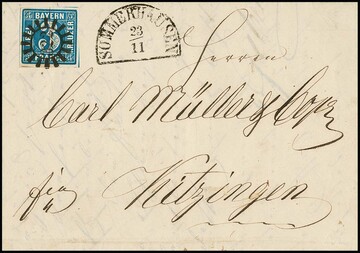 BAYERN
SOMMERHAUSEN
23
11
Herren
Carl Müller & Comp
Kitzingen